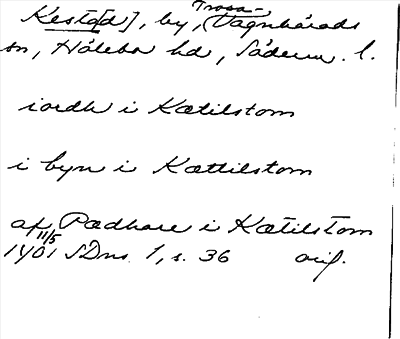 Trosa-
Kesta[d], by, (Vagnhärads
sn, Hölebo hd, Söderm. l.
iordh i Kætilstom
i byn i Kættilstom
af Pædhare i Kætilstom
11/5
1401 SDns 1, s. 36 orig.